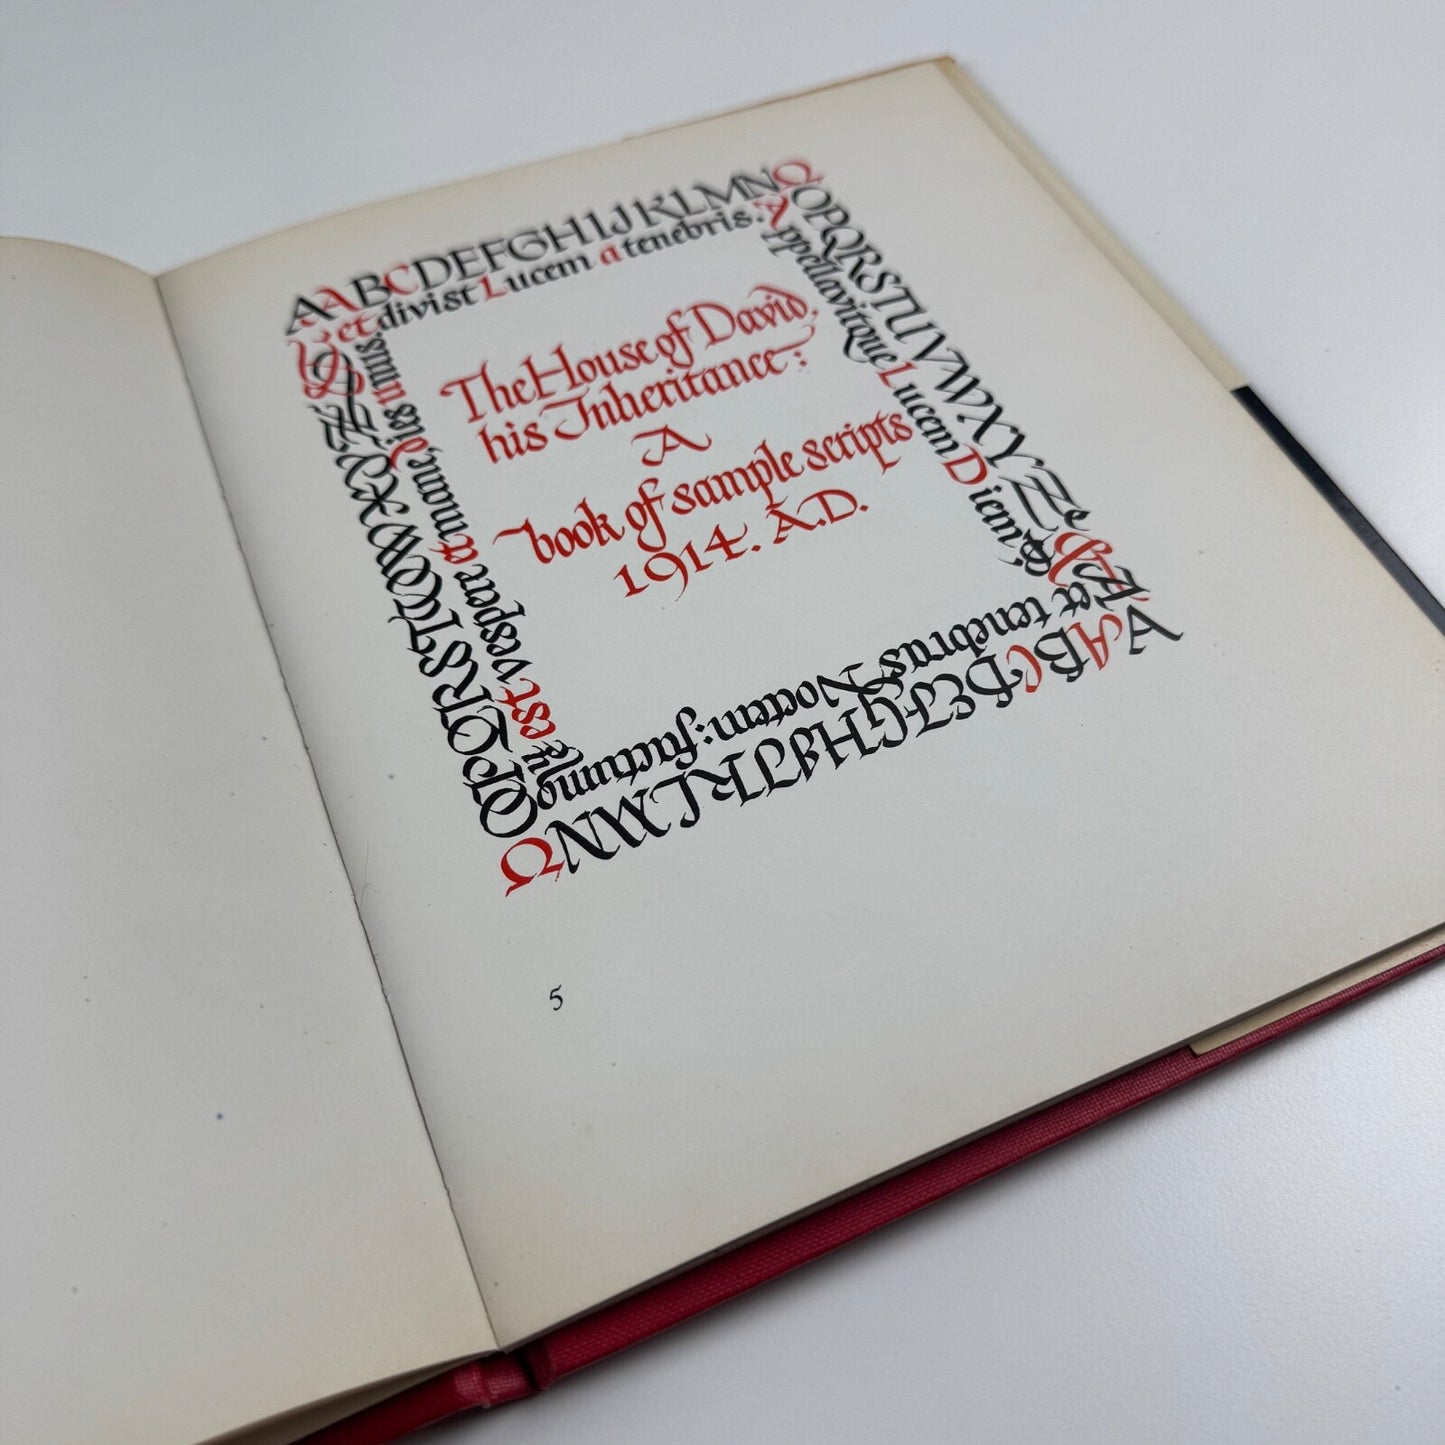 AABCDEFGHIJKLMNO
et divist Lucem a tenebris.
OPQRSTUVWXYZ
Appellavitque Lucem Diem
AABCDEFGHIJKLMNO
et tenebras Noctem: factumq
OPQRSTUVWXYZ
est vespere et mane, dies unus.
The House of David,
his Inheritance:
A
book of sample scripts
1914. A.D.
5